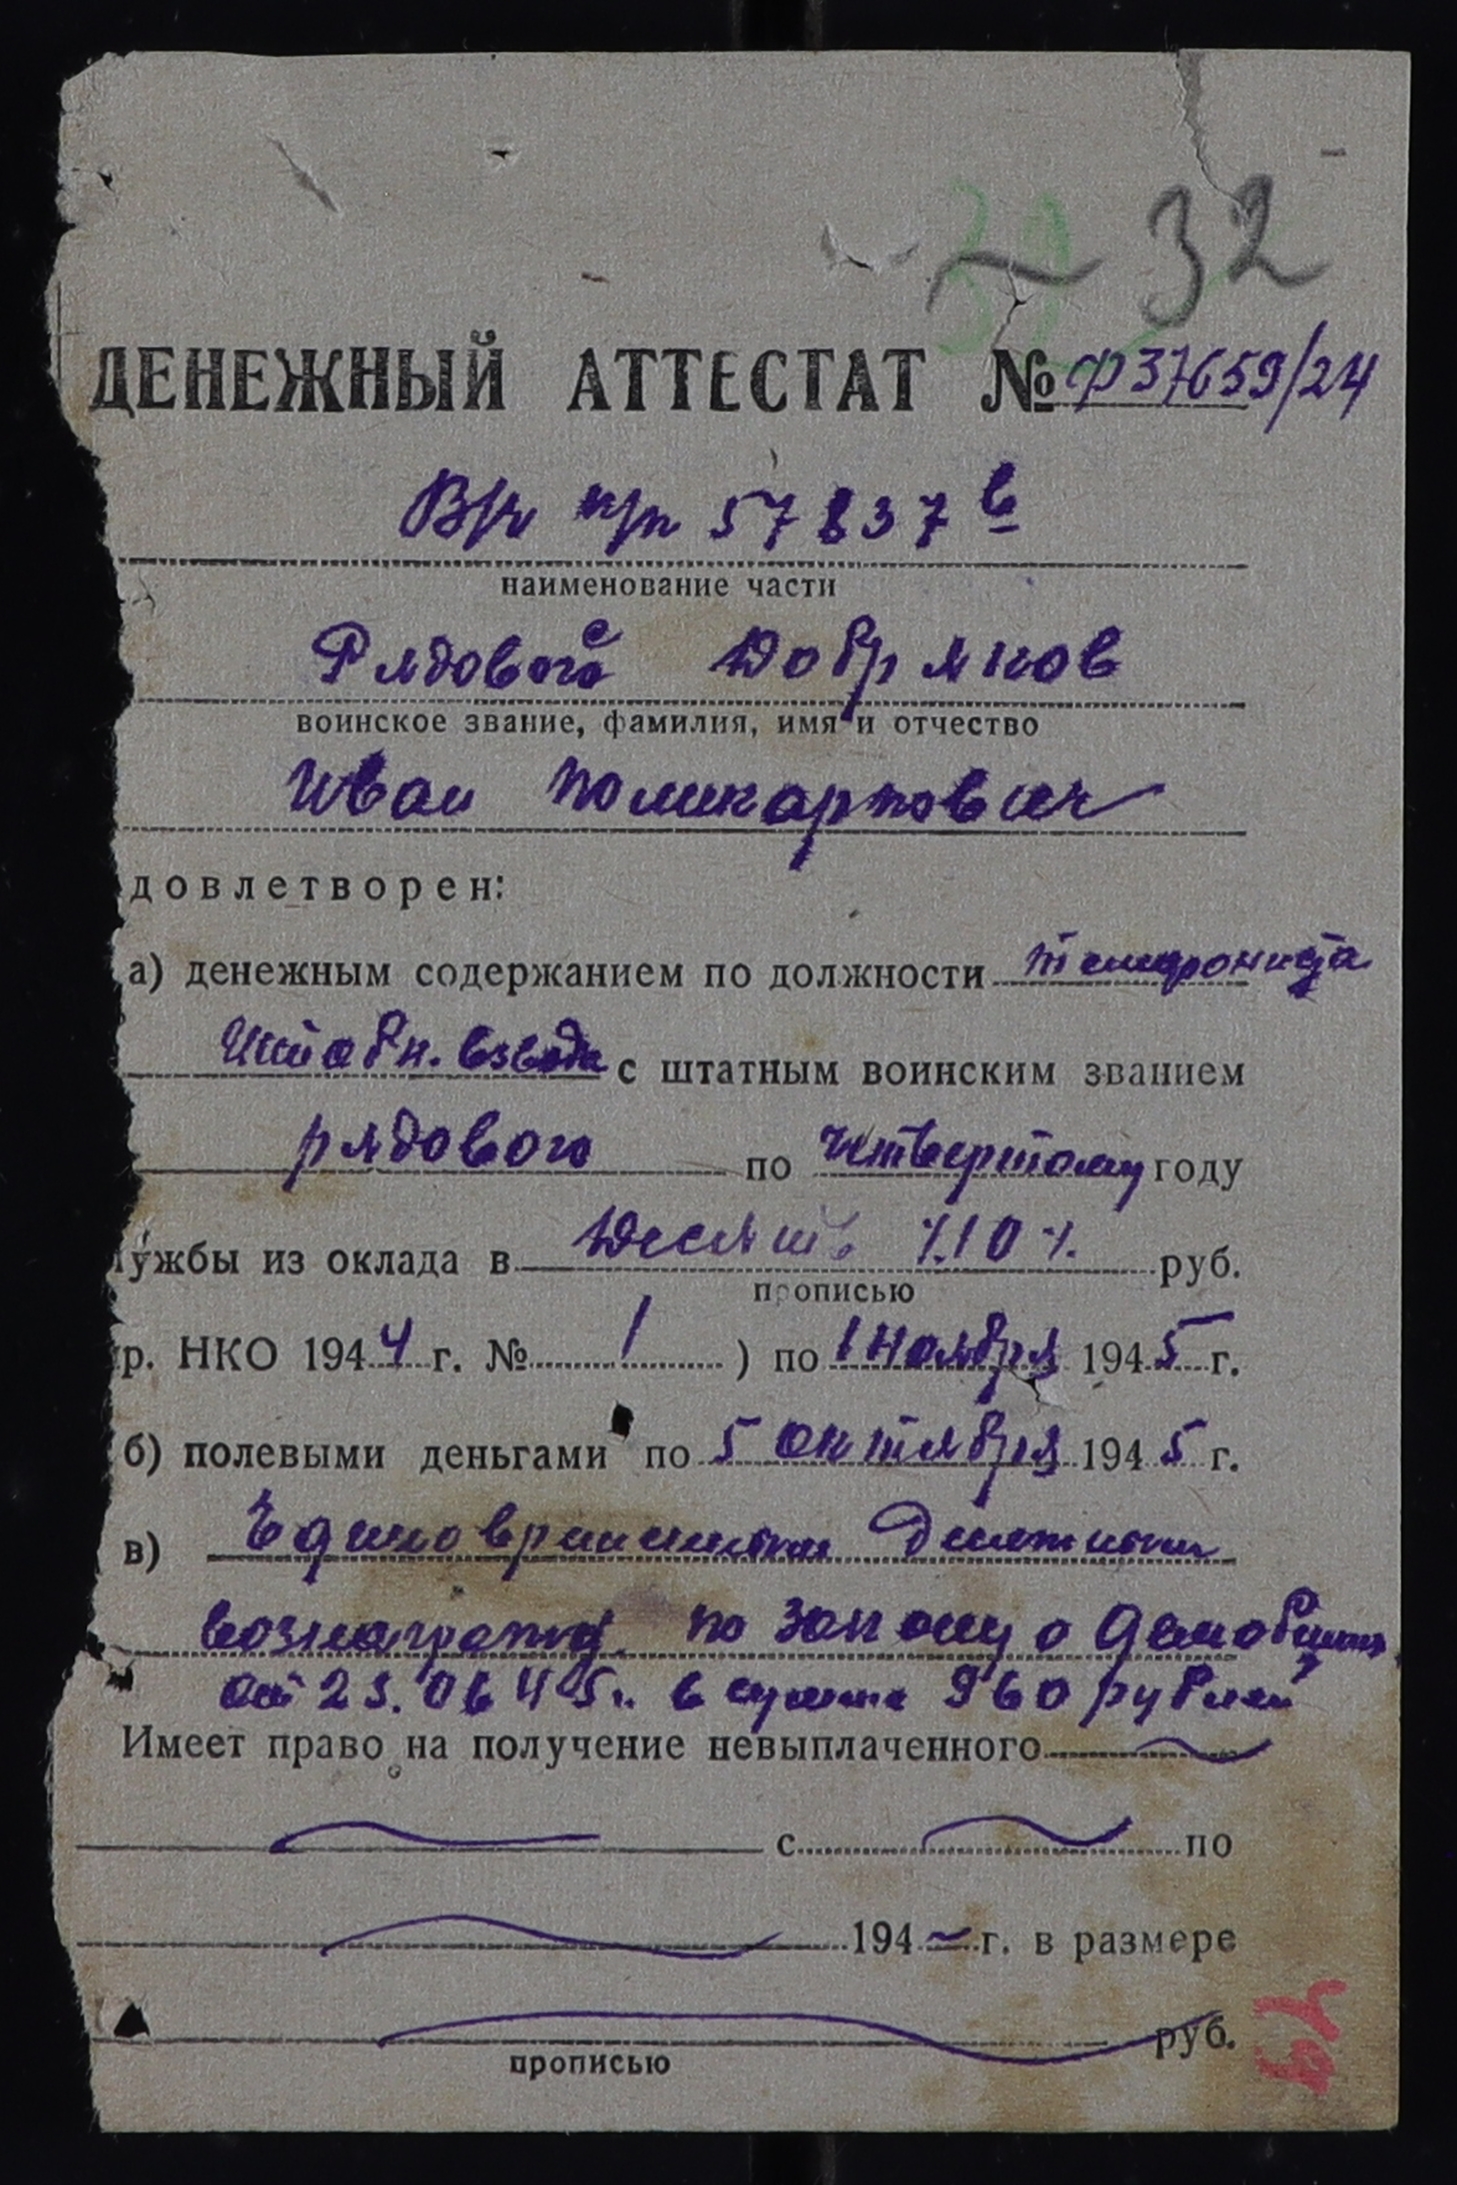 32
32
ДЕНЕЖНЫЙ АТТЕСТАТ № Ф37659/24
В/ч п/п 57837 в
наименование части
Рядового Добряков
воинское звание, фамилия, имя и отчество
Иван Поликарпович
довлетворен:
а) денежным содержанием по должности телефониста
Штабн. взвода с штатным воинским званием
рядового по четвертому году
ужбы из оклада в Десять /10/ руб.
прописью
р. НКО 1944 г. № 1 ) по 1 ноября 1945 г.
б) полевыми деньгами по 5 октября 1945 г.
в) Единовременным Денежным
вознагражд. по закону о демобилиз
от 23.06 45г. в сумме 960 рублей
Имеет право на получение невыплаченного
с по
194 г. в размере
руб.
прописью